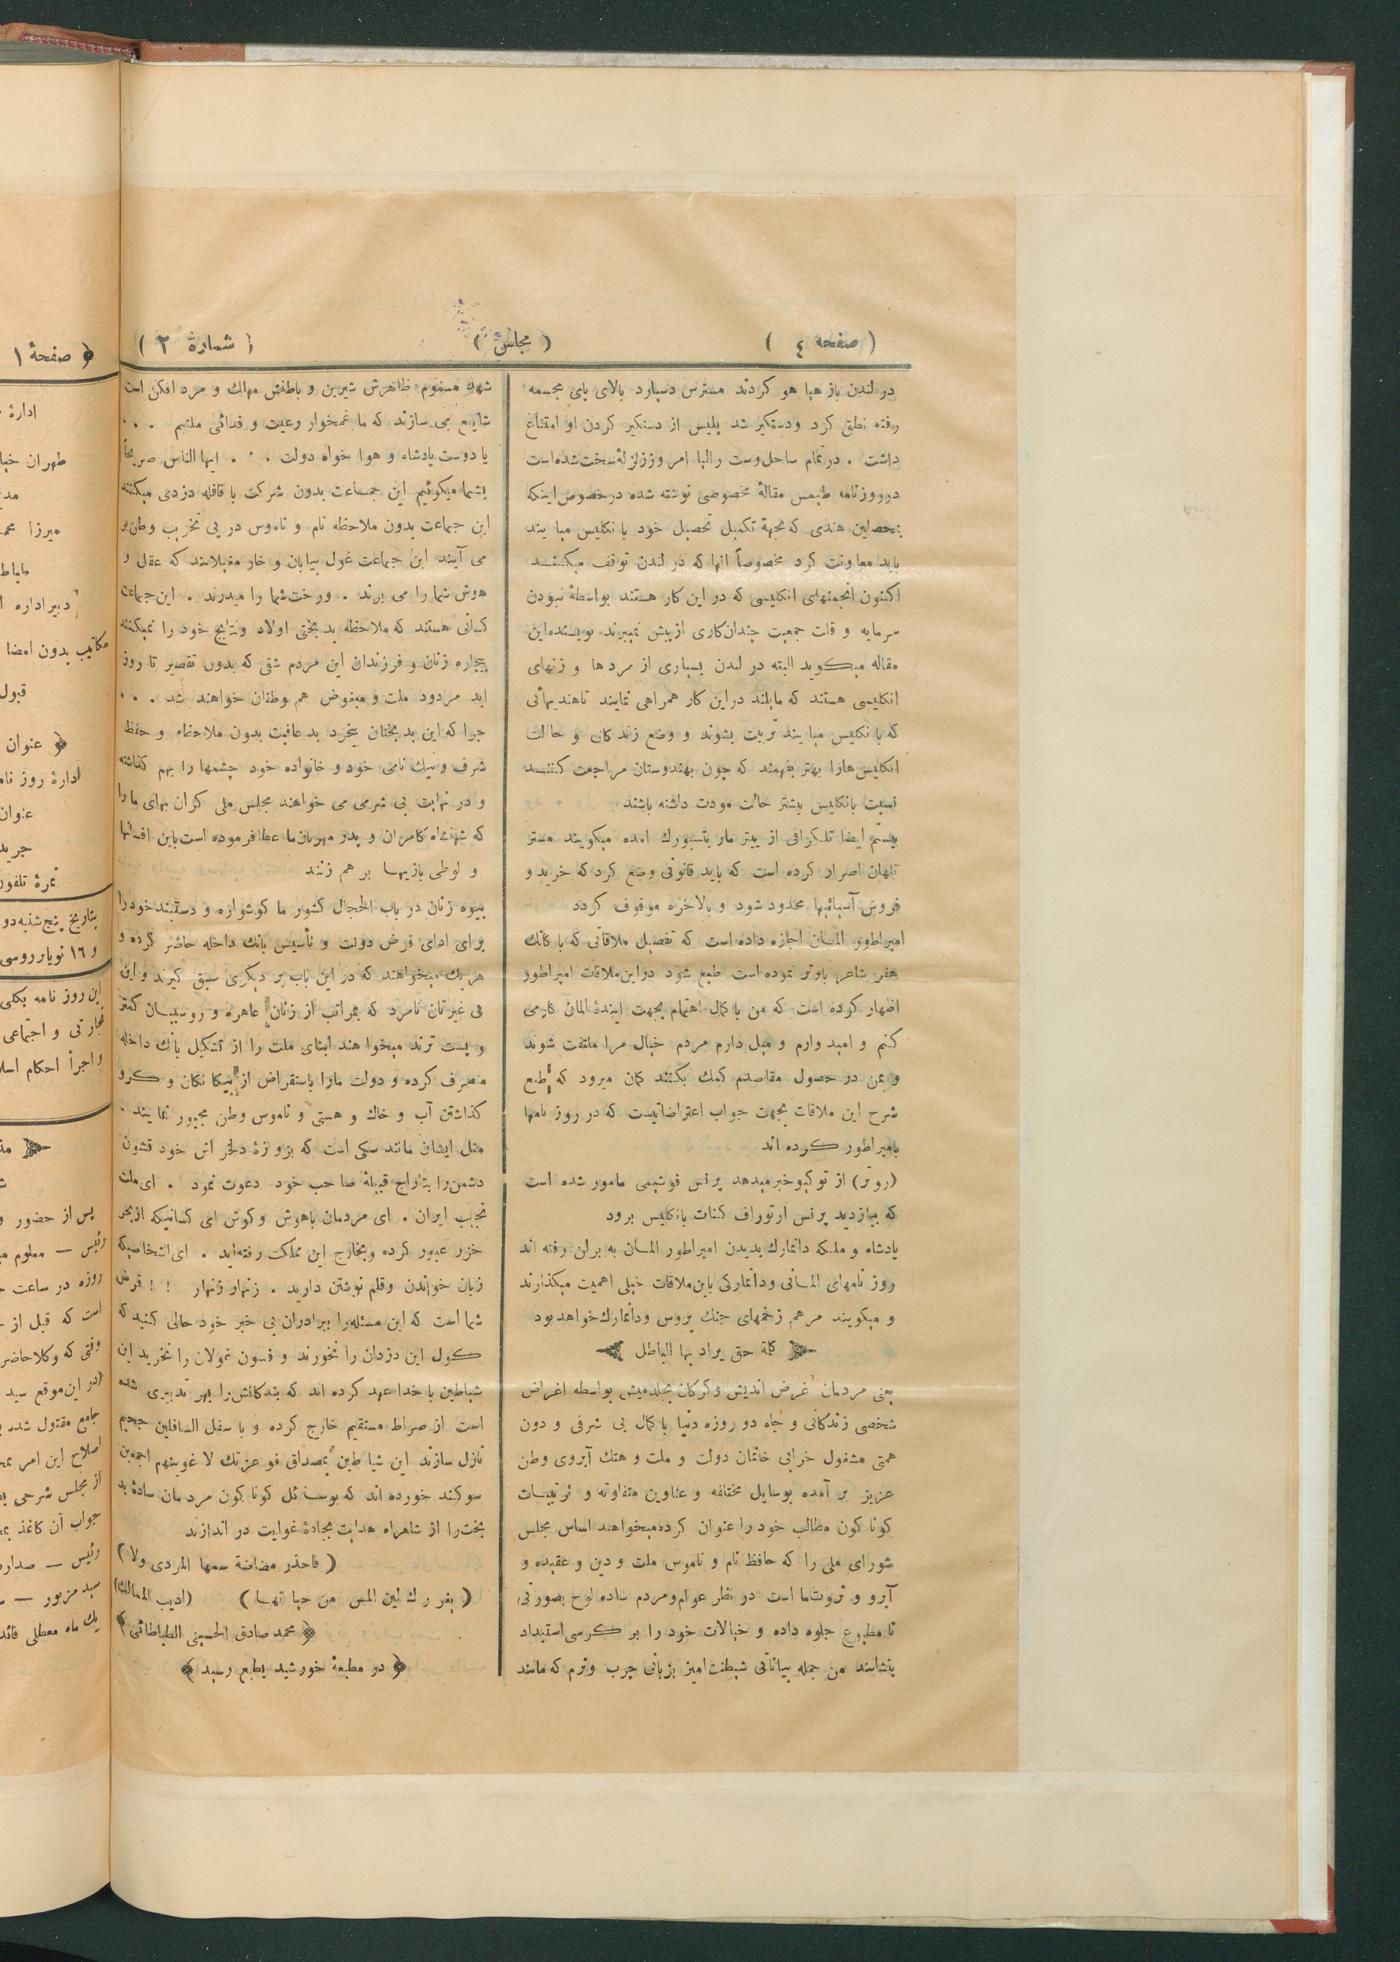 ( صفحه ٤ )
( مجلس )
( شمارهٔ ٢ )
در لندن باز هیا هو کردند مسترس دسپارد بالای پای مجسمه
رفته نطق کرد ودستکیر شد پلیس از دستکیر کردن او امتناع
داشت . درتمام ساحل وست رالیا امروز زلزلهٔ سخت شده است
درروزنامه طیمس مقالهٔ مخصوصی نوشته شده درخصوص اینکه
محصلین هندی که بجههٔ تکمیل تحصیل خود بانکلیس میا یند
باید معاونت کرد مخصوصاً آنها که در لندن توقف میکنند
اکنون انجمنهای انکلیسی که در این کار هستند بواسطهٔ نبودن
سرمایه و قلت جمعیت چندان کاری ازپیش نمیبرند نویسنده این
مقاله میکوید البته در لندن بسیاری از مردها و زنهای
انکلیسی هستند که مایلند دراین کار همراهی نمایند تاهندیهائی
که بانکلیس میا یند تربیت بشوند و وضع زندکانی و حالت
انکلیس هارا بهتر بفهمند که چون بهندوستان مراجعت کنند
نسبت بانکلیس بیشتر حالت مودت داشته باشند
بیستم ایضا تلکرافی از پیتر مار یتسبورك امده میکویند مستر
تلهان اصرار کرده است که باید قانونی وضع کرد که خرید و
فروش آسیائیها محدود شود و بالاخره موقوف کردد
امپراطور المان اجازه داده است که تفصیل ملاقاتی که با کانك
هفر شاعر باوتر نموده است طبع شود دراین ملاقات امپراطور
اظهار کرده است که من با کمال اهتمام بجهت ایندهٔ المان کارمی
کنم و امید وارم و میل دارم مردم خیال مرا ملتفت شوند
و بمن در حصول مقاصدم کمك بکنند کمان میرود که طبع
شرح این ملاقات بجهت جواب اعتراضاتیست که در روز نامها
بامپراطور کرده اند
(روتر) از توکیوخبر میدهد پرنس فوشیمی مامور شده است
که ببازدید پرنس ارتوراف کنات بانکلیس برود
پادشاه و ملکه دانمارك بدیدن امپراطور المان به برلن رفته اند
روز نامهای المانی ودانمارکی باین ملاقات خیلی اهمیت میکذارند
و میکویند مرهم زخمهای جنك پروس ودانمارك خواهد بود
کلمة حق یراد بها الباطل
یعنی مردمان غرض اندیش وکرکان بجلد میش بواسطه اغراض
شخصی زندکانی و جاه دو روزه دنیا با کمال بی شرفی و دون
همتی مشغول خرابی خانمان دولت و ملت و هتك آبروی وطن
عزیز بر آمده بوسایل مختلفه و عناوین متفاوته و ترتیبات
کونا کون مطالب خود را عنوان کرده میخواهند اساس مجلس
شورای ملی را که حافظ نام و ناموس ملت و دین و عقیده و
آبرو و ثروت ما است در نظر عوام ومردم ساده لوح بصورتی
نا مطبوع جلوه داده و خیالات خود را بر کرسی استبداد
بنشانند من جمله بیاناتی شیطنت امیز بزبانی چرب ونرم که مانند
شهد مسموم ظاهرش شیرین و باطنش مهلك و مرد افکن است
شایع می سازند که ما غمخوار رعیت و فدائی ملتیم . . .
یا دوست پادشاه و هوا خواه دولت . . . ایها الناس صریحاً
بشما میکوئیم این جماعت بدون شرکت با قافله دزدی میکنند
این جماعت بدون ملاحظه نام و ناموس در پی تخریب وطن بر
می آیند این جماعت غول بیابان و خار مغیلانند که عقل و
هوش شما را می برند . ورخت شما را میدرند . این جماعت
کسانی هستند که ملاحظه بد بختی اولاد ونتایج خود را نمیکنند
بیچاره زنان و فرزندان این مردم شقی که بدون تقصیر تا روز
ابد مردود ملت و مبغوض هم وطنان خواهند شد . . .
چرا که این بد بختان بیخرد بد عاقبت بدون ملاحظه و حفظ
شرف و نیك نامی خود و خانواده خود چشمها را بهم کذاشته
و در نهایت بی شرمی می خواهند مجلس ملی کران بهای ما را
که شهنشاه کامران و پدر مهربان ما عطا فرموده است باین افسانها
و لوطی بازیها بر هم زنند
بیوه زنان در باب الحجال کشور ما کوشواره و دستبند خود را
برای ادای قرض دولت و تأسیس بانك داخله حاضر کرده و
هر یك میخواهند که در این باب بر دیکری سبق کیرند و این
بی غیرتان نامرد که بمراتب از زنان عاهره و روسپیان کمتر
و پست ترند میخوا هند ابنای ملت را از تشکیل بانك داخله
منصرف کرده و دولت مارا باستقراض از بیکا نکان و کرو
کذاشتن آب و خاك و هستی و ناموس وطن مجبور نما یند .
مثل ایشان مانند سکی است که بزوزهٔ دلخر اش خود قشون
دشمن را بتاراج قبیلهٔ صاحب خود دعوت نمود . ای ملت
نجیب ایران . ای مردمان باهوش وکوش ای کسانیکه از بحر
خزر عبور کرده وبخارج این مملکت رفته اید . ای اشخاصیکه
زبان خواندن وقلم نوشتن دارید . زنهار زنهار ! ! فرض
شما است که این مسئله را ببرادران بی خبر خود حالی کنید که
کول این دزدان را نخورند و فسون غولان را نخرید این
شیاطین با خدا عهد کرده اند که بندکانش را بهر تدبیری شده
است از صراط مستقیم خارج کرده و با سفل السافلین جحیم
نازل سازند این شیاطین بمصداق فو عزتك لا غوینهم اجمعین
سوکند خورده اند که بوسائل کونا کون مردمان سادهٔ بد
بخت را از شاهراه هدایت بجادهٔ غوایت در اندازند
( فاحذر مضاضة سمها المردی ولا )
( یغر رك لین المس من حیا تها ) (ادیب الممالك)
﴿ محمد صادق الحسینی الطباطبائی ﴾
﴿ در مطبعهٔ خورشید بطبع رسید ﴾
﴿ صفحهٔ ١
ادارهٔ
طهران خیا
میرزا محمد
دبیر اداره
مکاتیب بدون امضا
قبول
﴿ عنوان
ادارهٔ روز نامه
عنوان
نمرهٔ تلفون
بتاریخ پنج شنبه دو
و ١٦ نویابر روسی
این روز نامه بکلی
تجارتی و اجتماعی
واجرأ احکام اسلا
پس از حضور و
رئیس — معلوم
روزه در ساعت
است که قبل از
وقتی که وکلا حاضر
(در این موقع سید
جامع مقتول شده
اصلاح این امر
از مجلس شرحی
جواب آن کاغذ
رئیس — صدارت
سید مزبور —
یك ماه معطلی